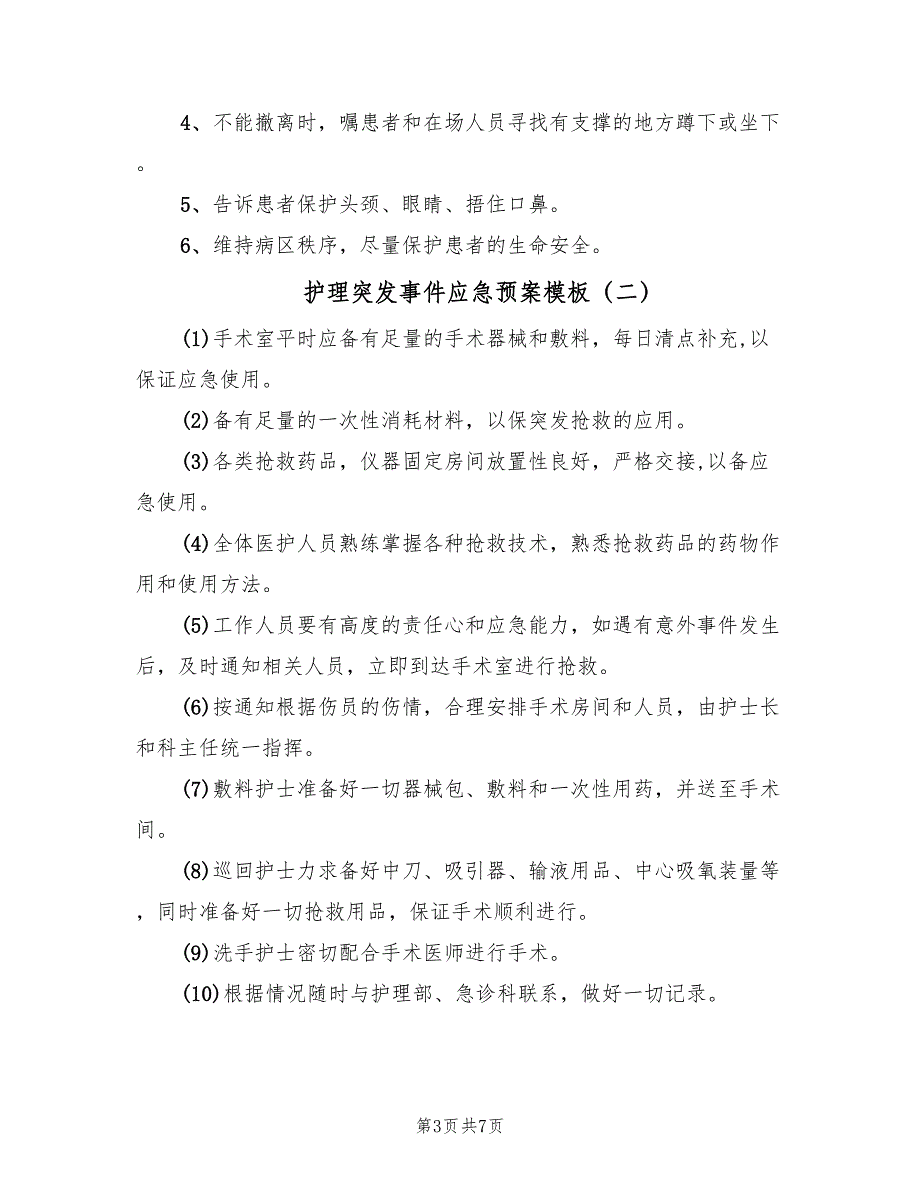 4、不能撤离时，嘱患者和在场人员寻找有支撑的地方蹲下或坐下
。
5、告诉患者保护头颈、眼睛、捂住口鼻。
6、维持病区秩序，尽量保护患者的生命安全。
护理突发事件应急预案模板（二）
(1)手术室平时应备有足量的手术器械和敷料，每日清点补充,以
保证应急使用。
(2)备有足量的一次性消耗材料，以保突发抢救的应用。
(3)各类抢救药品，仪器固定房间放置性良好，严格交接,以备应
急使用。
(4)全体医护人员熟练掌握各种抢救技术，熟悉抢救药品的药物作
用和使用方法。
(5)工作人员要有高度的责任心和应急能力，如遇有意外事件发生
后，及时通知相关人员，立即到达手术室进行抢救。
(6)按通知根据伤员的伤情，合理安排手术房间和人员，由护士长
和科主任统一指挥。
(7)敷料护士准备好一切器械包、敷料和一次性用药，并送至手术
间。
(8)巡回护士力求备好中刀、吸引器、输液用品、中心吸氧装量等
，同时准备好一切抢救用品，保证手术顺利进行。
(9)洗手护士密切配合手术医师进行手术。
(10)根据情况随时与护理部、急诊科联系，做好一切记录。
第3页共7页